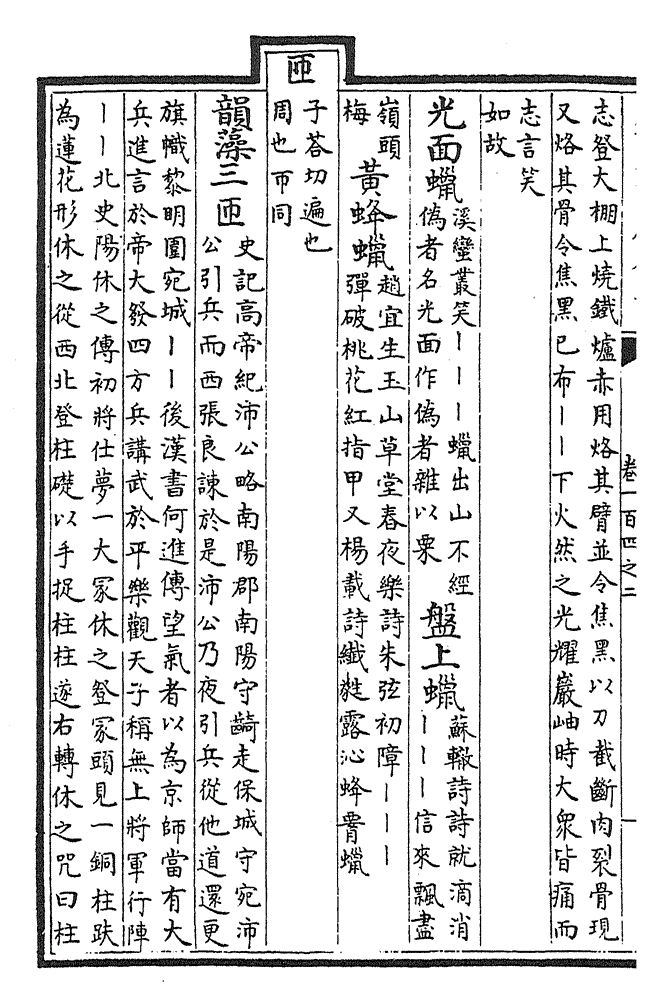 志登大棚上燒鐵爐赤用烙其臂並令焦黑以刀截斷肉裂骨現
又烙其骨令焦黑已布丨丨下火然之光耀巖岫時大衆皆痛而
志言笑
如故
光面蠟
溪蠻叢笑丨丨丨蠟出山不經
偽者名光面作偽者雜以粟
盤上蠟
蘇轍詩詩就滴消
丨丨丨信來飄盡
嶺頭
梅
黃蜂蠟
趙宜生玉山草堂春夜樂詩朱弦初障丨丨丨
彈破桃花紅指甲又楊載詩纖蕤露沁蜂胷蠟
匝
子荅切遍也
周也帀同
韻藻三匝
史記高帝紀沛公略南陽郡南陽守齮走保城守宛沛
公引兵而西張良諫於是沛公乃夜引兵從他道還更
旗幟黎明圍宛城丨丨後漢書何進傳望氣者以為京師當有大
兵進言於帝大發四方兵講武於平樂觀天子稱無上將軍行陣
丨丨北史陽休之傳初將仕夢一大冢休之登冢頭見一銅柱趺
為蓮花形休之從西北登柱礎以手捉柱柱遂右轉休之咒曰柱
卷一百四之二